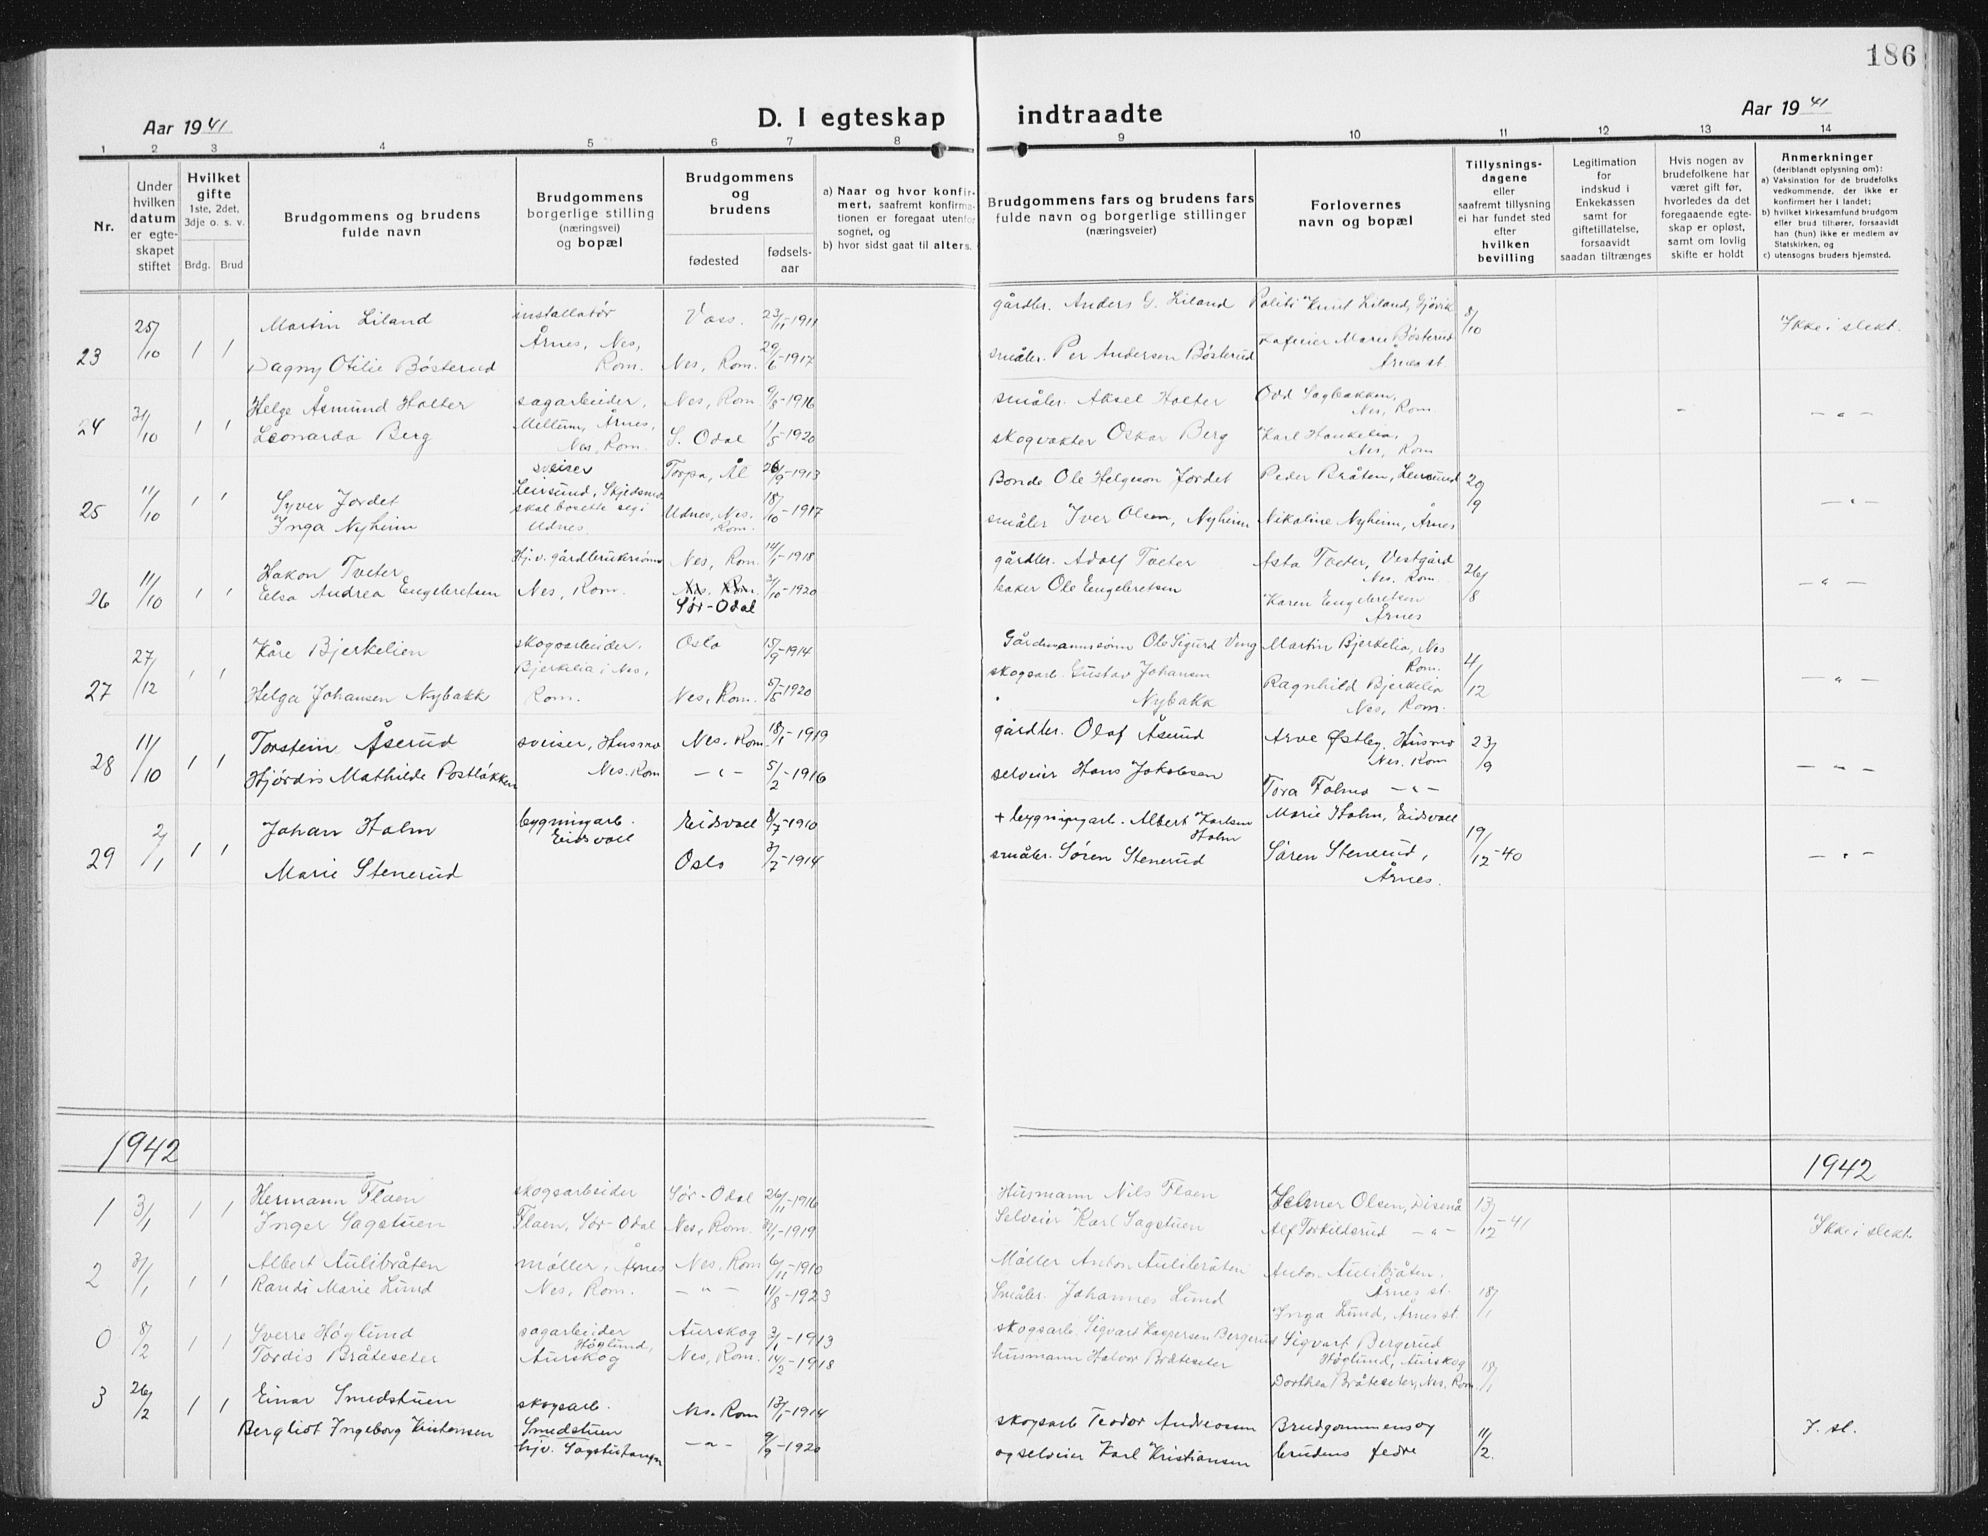 186
Aar 1941
D. I egteskap indtraadte
Aar 1941
1 2 3 4 5 6 7 8 9 10 11 12 13 14
Nr.
Under hvilken datum er egteskapet stiftet
Hvilket gifte
1ste, 2det, 3dje o. s. v.
Brdg. Brud
Brudgommens og brudens fulde navn
Brudgommens borgerlige stilling (næringsvei) og bopæl
Brudgommens og brudens
fødested
fødsels-aar
a) Naar og hvor konfirmert, saafremt konfirmationen er foregaat utenfor sognet, og
b) hvor sidst gaat til alters.
Brudgommens fars og brudens fars fulde navn og borgerlige stillinger (næringsveier)
Forlovernes navn og bopæl
Tillysnings-dagene eller saafremt tillysning ei har fundet sted efter hvilken bevilling
Legitimation for indskud i Enkekassen samt for giftetillatelse, forsaavidt saadan tiltrænges
Hvis nogen av brudefolkene har været gift før, hvorledes da det foregaaende egteskap er opløst, samt om lovlig skifte er holdt
Anmerkninger
(deriblandt oplysning om):
a) Vaksination for de brudefolks vedkommende, der ikke er konfirmert her i landet;
b) hvilket kirkesamfund brudgom eller brud tilhører, forsaavidt han (hun) ikke er medlem av Statskirken, og
c) utensogns bruders hjemsted.
23 25/10 1 1 Martin Liland installatør Årnes, Nes, Rom. Voss. 23/11-1911 gårdbr. Anders G. Liland Politi Knut Liland, Gjøvik 8/10 Ikke i slekt.
Dagny Otilie Bösterud Nes, Rom. 29/6-1917 småbr. Per Andersen Bösterud Marie Bösterud Årnes st.
24 31/10 1 1 Helge Åsmund Holter sagarbeider, Årnes, Nes, Rom. Nes, Rom 9/8-1916 småbr. Aksel Holter Odd Sagbakken, Nes, Rom. - " -
Leonarda Berg S. Odal 11/5-1920 skogvakter Oskar Berg Karl Haukelia, Nes, Rom
25 11/10 1 1 Syver Jordet sveiser Leirsund, Skjedsmo skal bosette seg i Udnes Torpa, Ål 26/9-1913 Bonde Ole Helgeson Jordet Peder Bråten, Leirsund 20/9 - " -
Inga Nyheim Udnes, Nes. Rom. 18/10-1917 småbr Iver Olsen, Nyheim Nikoline Nyheim, Årnes
26 11/10 1 1 Hakon Tveter Hj.v. gårdbrukrsønn Nes, Rom. Nes, Rom. 14/1-1918 gårdbr. Adolf Tveter Asta Tveter, Vestgård Nes, Rom. 26/8 - " -
Elsa Andrea Engebretsen Nes. Rom. Sør-Odal 31/10-1920 baker Ole Engebretsen Karen Engebretsen Årnes
27 27/12 1 1 Kåre Bjerkelien skogsarbeider, Bjerkelia i Nes, Rom. Oslo 15/9-1914 Gårdmannssønn Ole Sigurd Veng Martin Bjerkelia, Nes Rom. 4/12 - " -
Helga Johansen Nybakk Nes, Rom. 5/5-1920 skogsarb. Gustav Johansen Nybakk Ragnhild Bjerkelia Nes, Rom.
28 11/10 1 1 Torstein Åserud sveiser, Husmo Nes. Rom Nes. Rom 18/1-1919 gårdbr. Olaf Åsrud Arve Østby, Husmo Nes. Rom 23/9 - " -
Hjördis Mathilde Postløkken - " - 5/2-1916 selveier Hans Jakobsen Tora Folmo - " -
29 2/1 1 1 Johan Holm bygningarb. Eidsvoll Eidsvoll 8/7-1910 + bygningarb. Albert Karlsen Holm Marie Holm, Eidsvoll 19/12-40 - " -
Marie Stenerud Oslo 3/7-1914 småbr. Søren Stenerud Søren Stenerud, Årnes.
1942 1942
1 3/1 1 1 Hermann Flaen skogsarbeider Flaen, Sör-Odal Sör-Odal 26/11-1916 Husmann Nils Flaen Helmer Olsen, Disenå 13/12-41 Ikke i slekt.
Inger Sagstuen Nes, Rom. 31/1-1919 Selveier Karl Sagstuen Alf Torkildsrud - " -
2 31/1 1 1 Albert Aulibråten møller, Årnes Nes, Rom. Nes. Rom 6/11-1910 Møller Anton Aulibråten Anton Aulibråten, Årnes st. 18/1
Randi Marie Lund - " - 11/8-1923 Småbr. Johannes Lund Inga Lund, Årnes st.
0 8/2 1 1 Sverre Høglund sagarbeider Høglund, Aurskog Aurskog 3/1-1913 skogsarb. Sigvart Kaspersen Bergerud Sigvart Bergerud Høglund, Aurskog 18/1
Tordis Bråteseter Nes, Rom. 14/2-1918 husmann Halvor Bråteseter Dorthea Bråteseter, Nes, Rom.
3 26/2 1 1 Einar Smedstuen skogsarb. Smedstuen Nes. Rom 13/1-1914 skogsarb Teodor Andreassen Brudgommens og 11/2. I. sl.
Bergliot Ingeborg Kristansen hjv. Sagstustangn - " - 9/9-1920 og selveier Karl Kristiansen brudens fedre